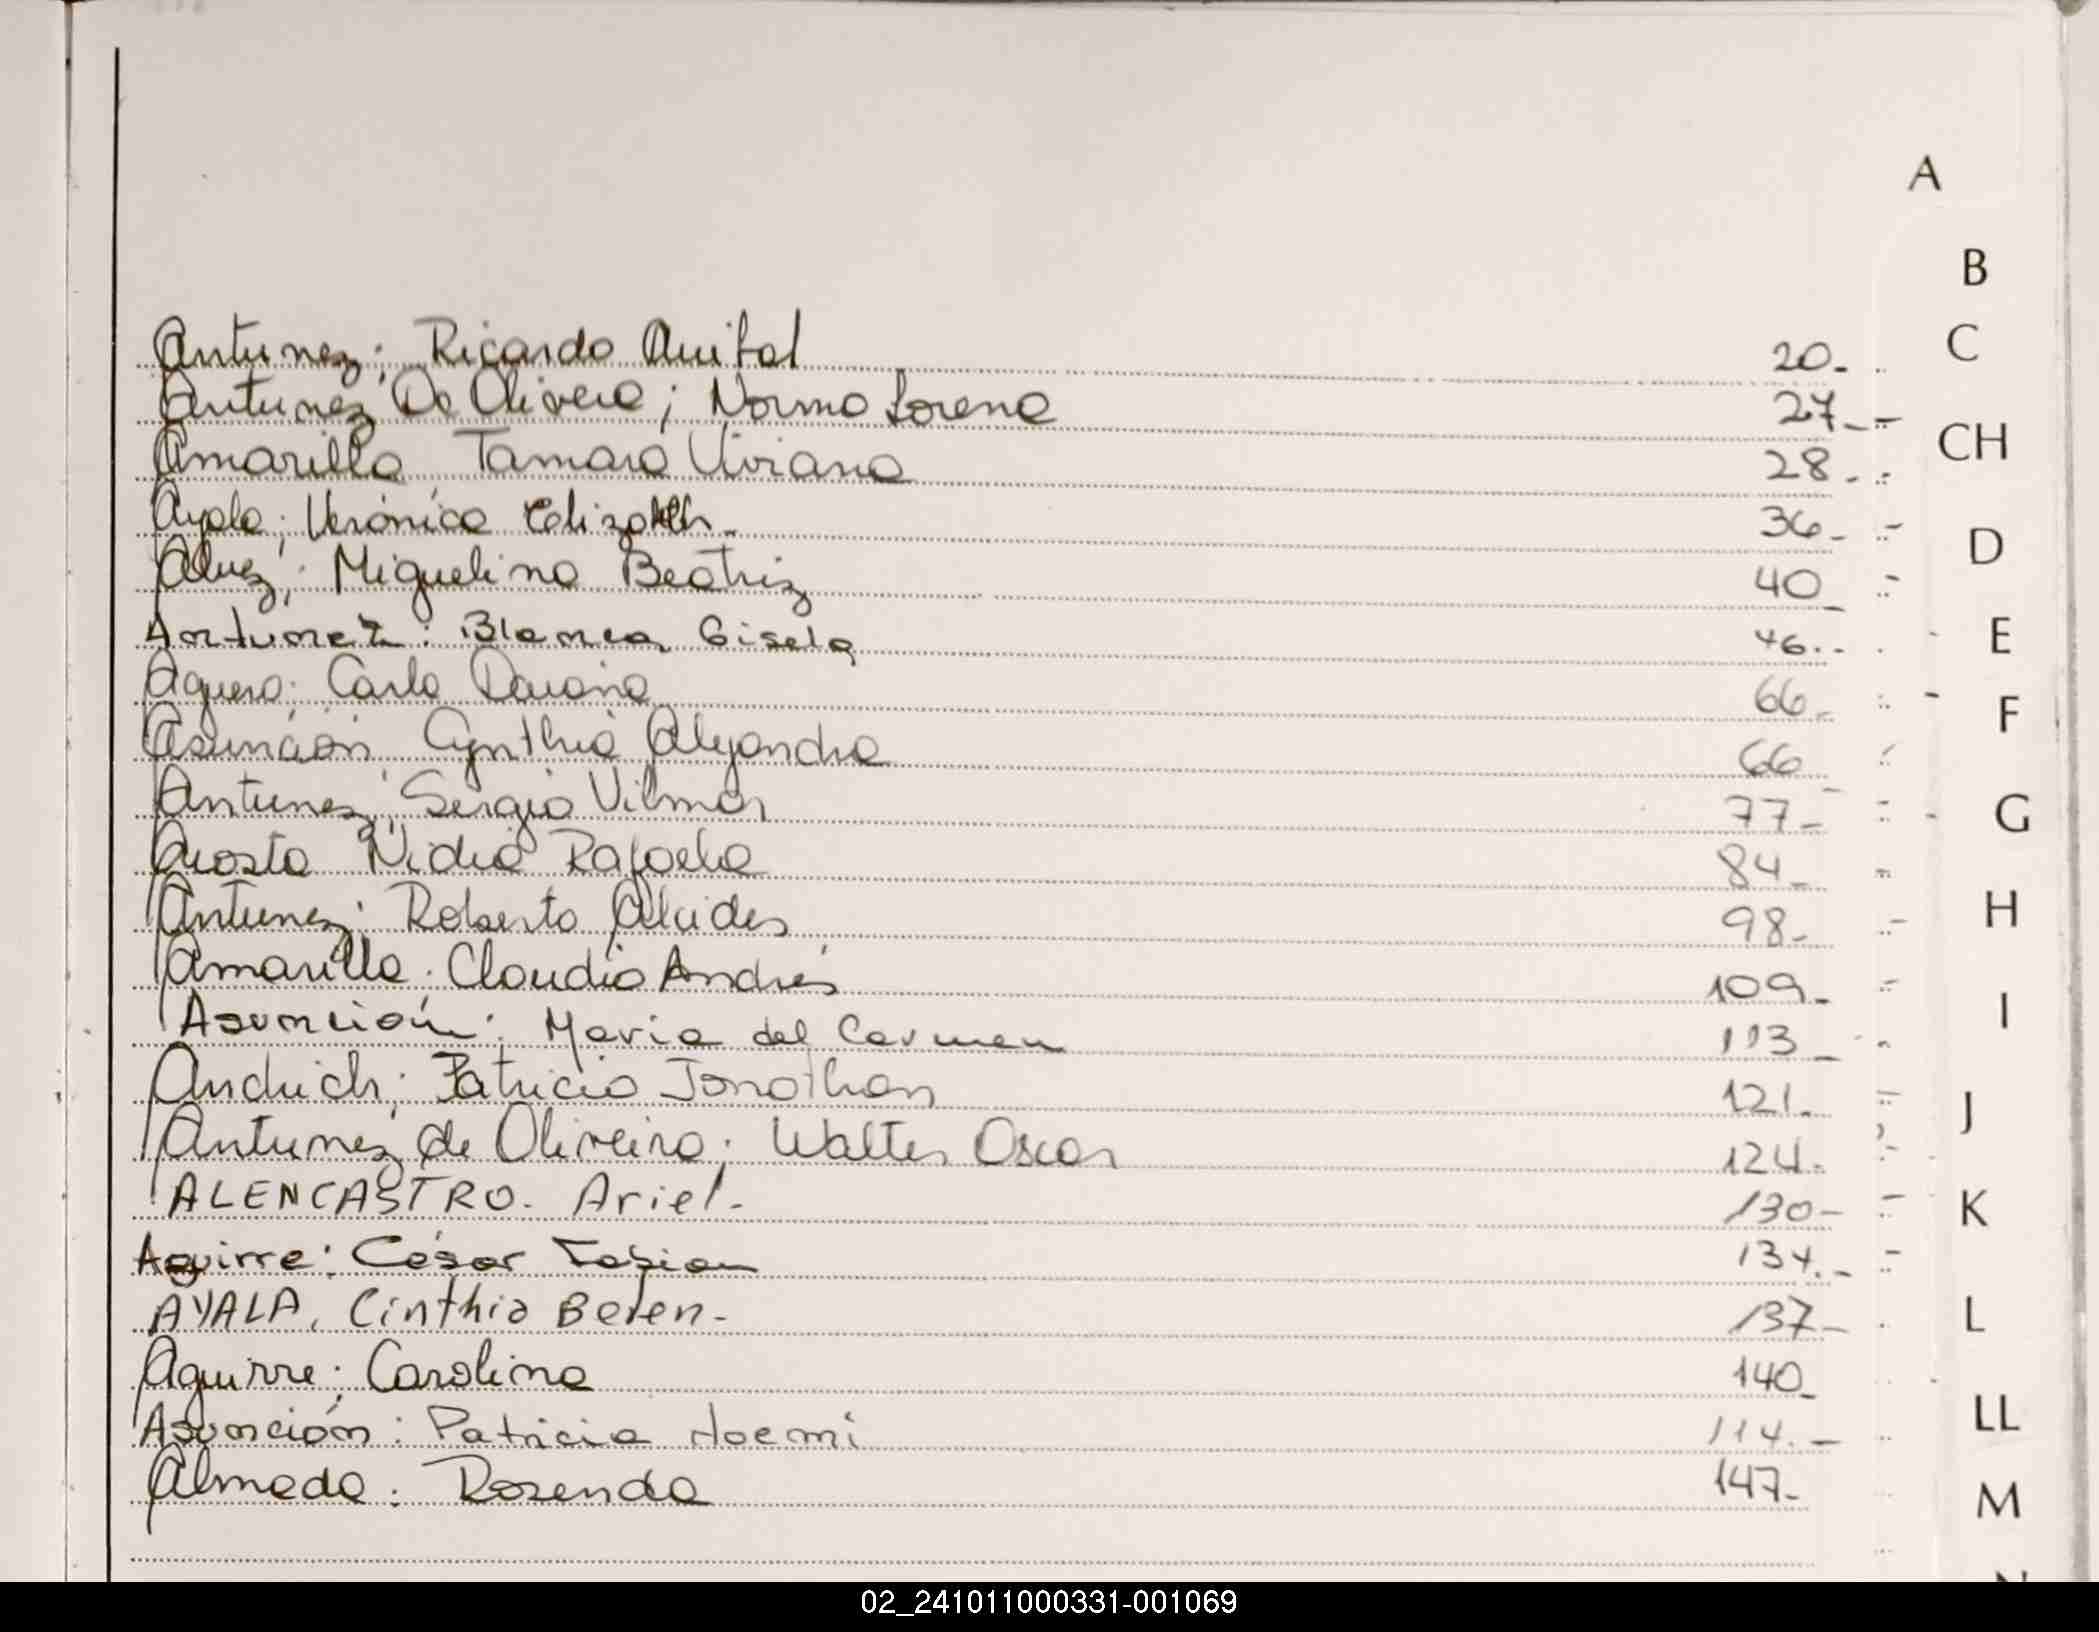 A
B
C
CH
D
E
F
G
H
I
J
K
L
LL
M
Antunez; Ricardo Anibal 20-
Antunez De Olivera; Norma Lorena 27-
Amarilla Tamara Viviana 28-
Ayala; Verónica Elizabeth- 36-
Alvez; Miguelina Beatriz 40-
Antunez: Blanca Gisela 46--
Aguero; Carla Daiana 66-
Asunción, Cynthia Alejandra 66-
Antunez; Sergio Vilmar 77-
Acosta Nidia Rafaela 84-
Antunez; Roberto Alcides 98-
Amarilla; Claudio Andrés 109-
Asunción; Maria del Carmen 113-
Andrich; Patricio Jonathan 121.
Antunez de Oliveira; Walter Oscar 124.
ALENCASTRO. Ariel- 130-
Aguirre: César Fabian 134.-
AYALA, Cinthia Belen- 137-
Aguirre; Carolina 140-
Asunción: Patricia Noemi 114.-
Almada: Rosenda 147-
02_241011000331-001069